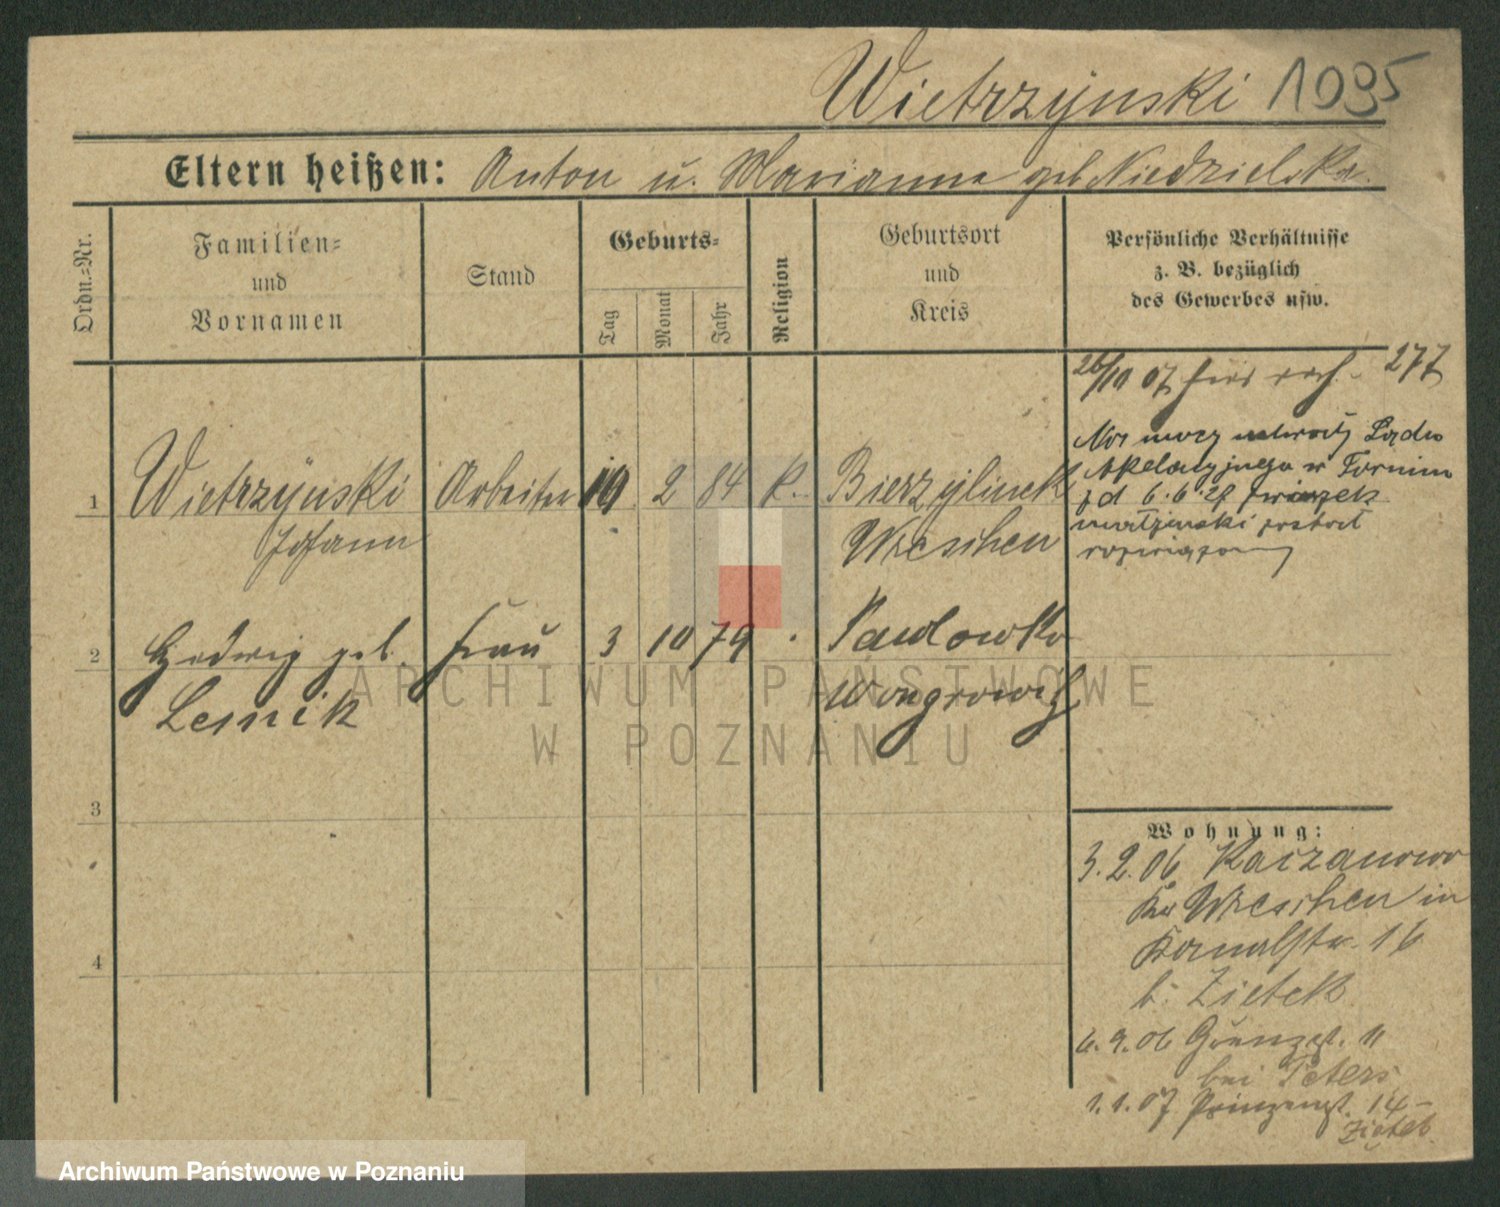 Wietrzynski 1095
Eltern heißen: Anton u. Marianna geb. Niedzielska.
Ordn.-Nr.
Familien-
und
Vornamen
Stand
Geburts-
Tag
Monat
Jahr
Religion
Geburtsort
und
Kreis
Persönliche Verhältnisse
z. B. bezüglich
des Gewerbes usw.
26/10 07 277
Na mocy Sądu
Apelacyjnego w Toruniu
z d 6.6.29 związek
małżeński został
rozwiązany
1 Wietrzynski Arbeiter 10 2 84 K. Bierzglinek
Johann Wreschen
2 Hedwig geb. Frau 3 10 79 Pawlowko
Lesnik Wongrowitz
3
4
Wohnung:
3.2.06 Kaczanowo
Kr Wreschen in
Kanalstr. 16
b. Zietek
6.9.06 Grenzst. 11
bei Peters
1.1.07 Prinzenst. 14
Zietek
ARCHIWUM PAŃSTWOWE
W POZNANIU
Archiwum Państwowe w Poznaniu